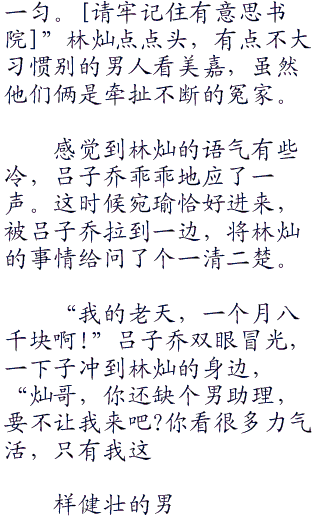 一匀。[请牢记住有意思书
院]”林灿点点头，有点不大
习惯别的男人看美嘉，虽然
他们俩是牵扯不断的冤家。
感觉到林灿的语气有些
冷，吕子乔乖乖地应了一
声。这时候宛瑜恰好进来，
被吕子乔拉到一边，将林灿
的事情给问了个一清二楚。
“我的老天，一个月八
千块啊！”吕子乔双眼冒光，
一下子冲到林灿的身边，
“灿哥，你还缺个男助理，
要不让我来吧?你看很多力气
活，只有我这
样健壮的男